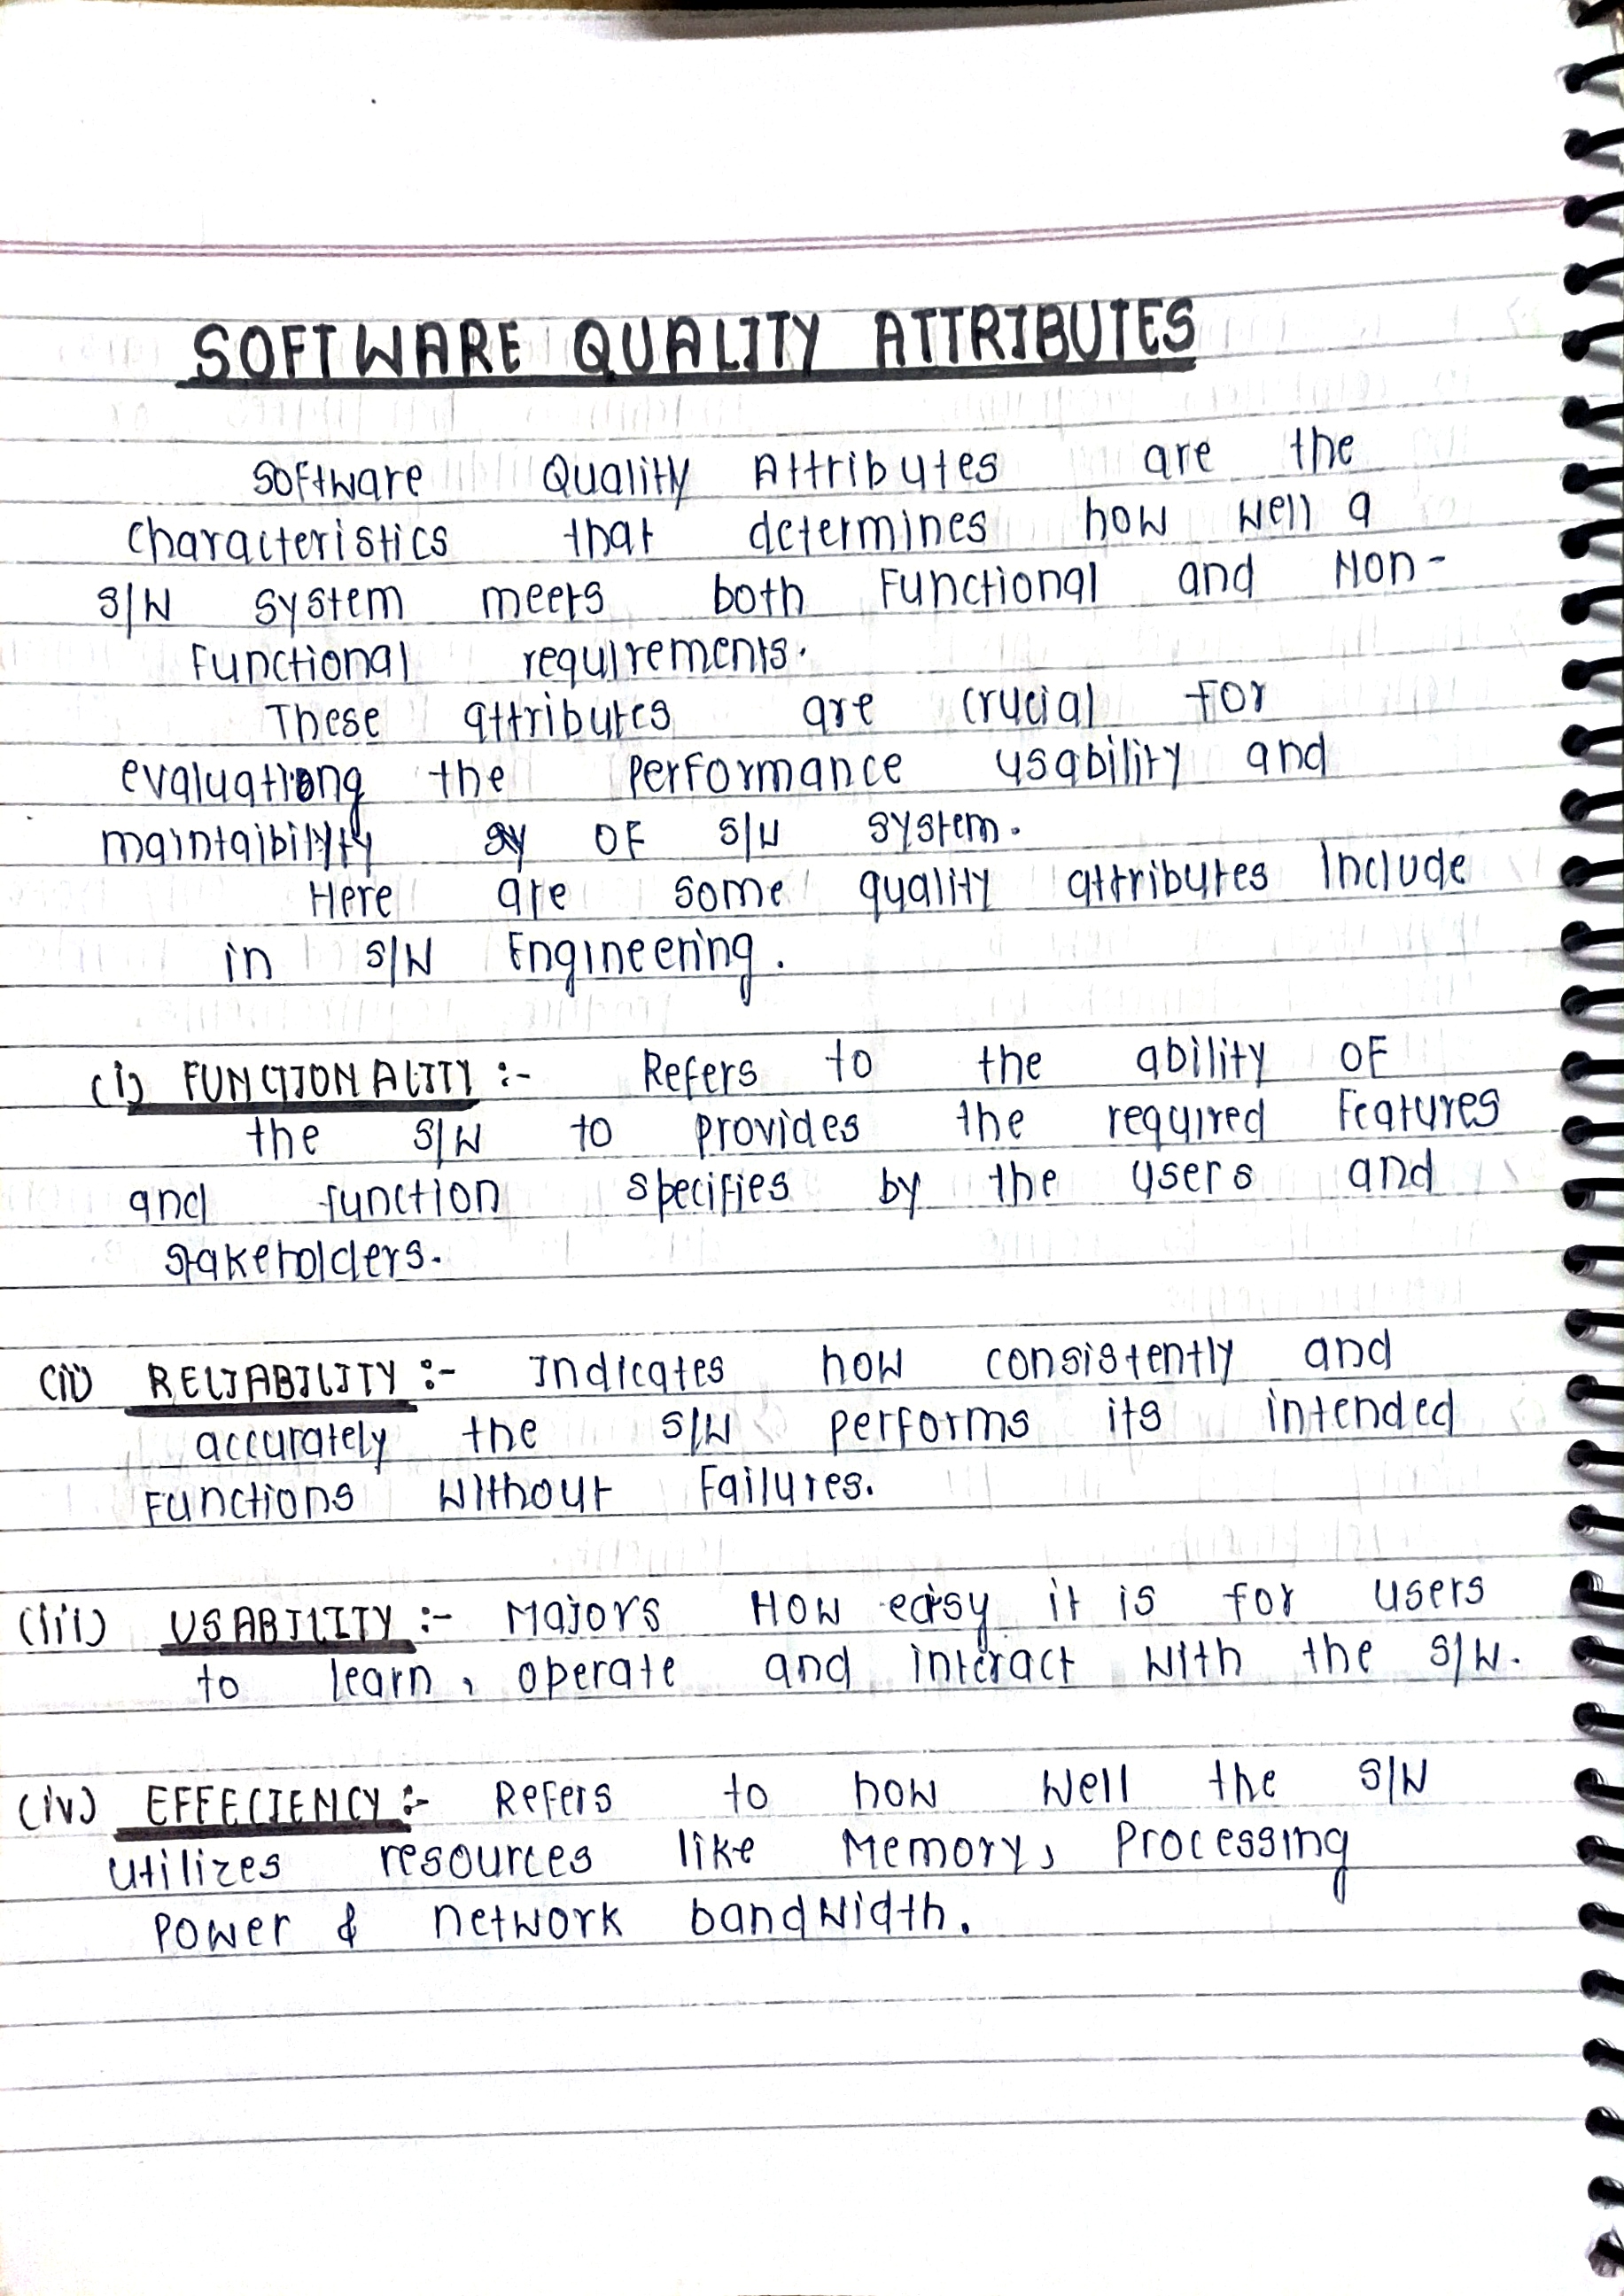 SOFTWARE QUALITY ATTRIBUTES
Software Quality Attributes are the
characteristics that determines how well a
S/W system meets both Functional and Non-
Functional requirements.
These attributes are crucial for
evaluationg the performance usability and
maintaibility OF S/W system.
Here are some quality attributes Include
in S/W Engineering.
(i) FUNCTIONALITY :- Refers to the ability OF
the S/W to provides the required Features
and function specifies by the users and
stakeholders.
(ii) RELIABILITY :- Indicates how consistently and
accurately the S/W performs its intended
Functions without Failures.
(iii) USABILITY :- Majors How easy it is for users
to learn, operate and interact with the S/W.
(iv) EFFECIENCY :- Refers to how well the S/W
utilizes resources like Memory, Processing
Power & network bandwidth.